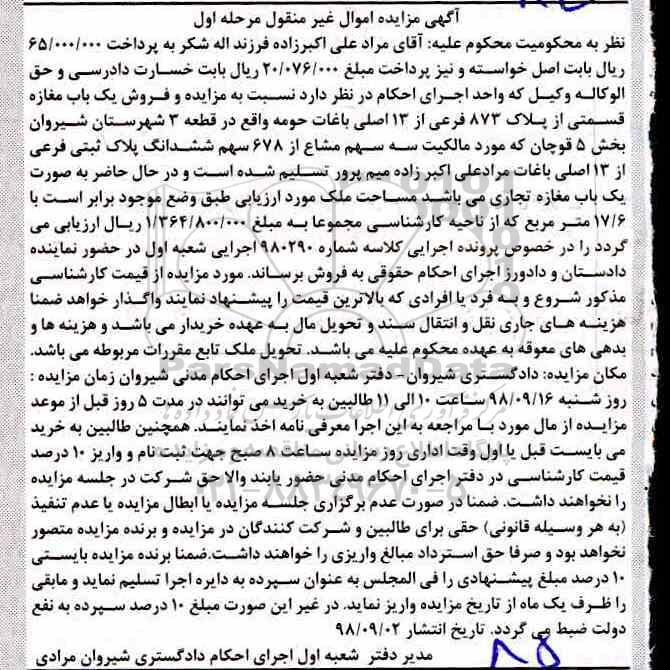 آگهی مزایده اموال غیر منقول مرحله اول
نظر به محکومیت محکوم علیه: آقای مراد علی اکبرزاده فرزند اله شکر به پرداخت ۶۵/۰۰۰/۰۰۰
ریال بابت اصل خواسته و نیز پرداخت مبلغ ۲۰/۰۷۶/۰۰۰ ریال بابت خسارت دادرسی و حق
الوکاله وکیل که واحد اجرای احکام در نظر دارد نسبت به مزایده و فروش یک باب مغازه
قسمتی از پلاک ۸۷۳ فرعی از ۱۳ اصلی باغات حومه واقع در قطعه ۳ شهرستان شیروان
بخش ۵ قوچان که مورد مالکیت سه سهم مشاع از ۶۷۸ سهم ششدانگ پلاک ثبتی فرعی
از ۱۳ اصلی باغات مرادعلی اکبر زاده میم پرور تسلیم شده است و در حال حاضر به صورت
یک باب مغازه تجاری می باشد مساحت ملک مورد ارزیابی طبق وضع موجود برابر است با
۱۷/۶ متر مربع که از ناحیه کارشناسی مجموعا به مبلغ ۱/۳۶۴/۸۰۰/۰۰۰ ریال ارزیابی می
گردد را در خصوص پرونده اجرایی کلاسه شماره ۹۸۰۲۹۰ اجرایی شعبه اول در حضور نماینده
دادستان و دادورز اجرای احکام حقوقی به فروش برساند. مورد مزایده از قیمت کارشناسی
مذکور شروع و به فرد یا افرادی که بالاترین قیمت را پیشنهاد نمایند واگذار خواهد ضمنا
هزینه های جاری نقل و انتقال سند و تحویل مال به عهده خریدار می باشد و هزینه ها و
بدهی های معوقه به عهده محکوم علیه می باشد. تحویل ملک تابع مقررات مربوطه می باشد.
مکان مزایده: دادگستری شیروان- دفتر شعبه اول اجرای احکام مدنی شیروان زمان مزایده :
روز شنبه ۹۸/۰۹/۱۶ ساعت ۱۰ الی ۱۱ طالبین به خرید می توانند در مدت ۵ روز قبل از موعد
مزایده از مال مورد با مراجعه به این اجرا معرفی نامه اخذ نمایند. همچنین طالبین به خرید
می بایست قبل یا اول وقت اداری روز مزایده ساعت ۸ صبح جهت ثبت نام و واریز ۱۰ درصد
قیمت کارشناسی در دفتر اجرای احکام مدنی حضور یابند والا حق شرکت در جلسه مزایده
را نخواهند داشت. ضمنا در صورت عدم برگزاری جلسه مزایده یا ابطال مزایده یا عدم تنفیذ
(به هر وسیله قانونی) حقی برای طالبین و شرکت کنندگان در مزایده و برنده مزایده متصور
نخواهد بود و صرفا حق استرداد مبالغ واریزی را خواهند داشت.ضمنا برنده مزایده بایستی
۱۰ درصد مبلغ پیشنهادی را فی المجلس به عنوان سپرده به دایره اجرا تسلیم نماید و مابقی
را ظرف یک ماه از تاریخ مزایده واریز نماید. در غیر این صورت مبلغ ۱۰ درصد سپرده به نفع
دولت ضبط می گردد. تاریخ انتشار ۹۸/۰۹/۰۲
مدیر دفتر شعبه اول اجرای احکام دادگستری شیروان مرادی
ParsNamadData
۰۲۱-۸۸۳۴۹۶۷۰-۵